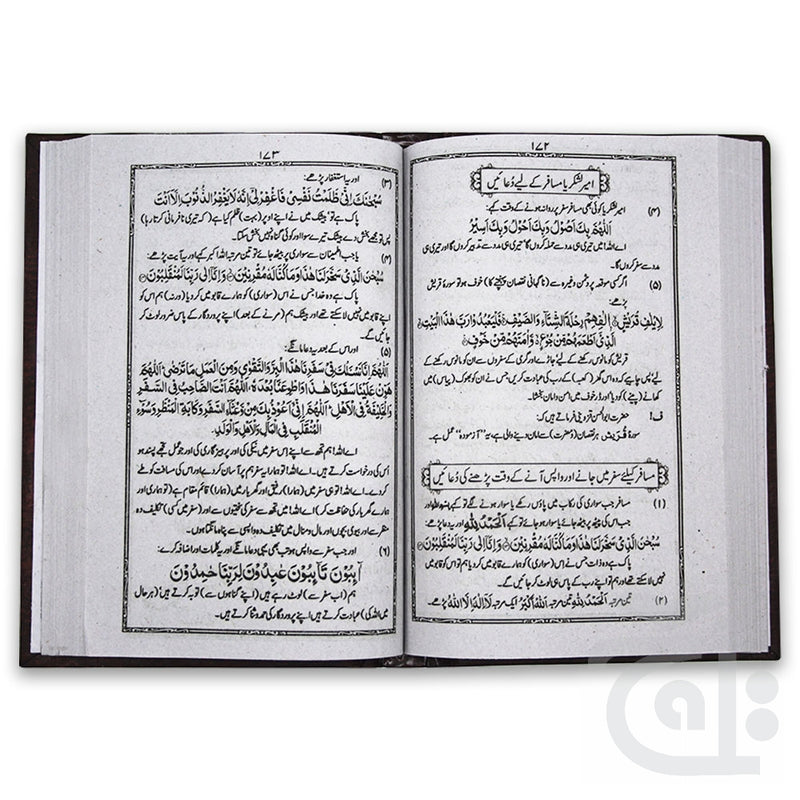 ۱۷۲
امیر لشکر یا مسافر کے لیے دُعائیں
(۴) امیر لشکر یا کوئی بھی مسافر سفر پر روانہ ہونے کے وقت کہے:
اَللّٰهُمَّ بِكَ اَصُوْلُ وَبِكَ اَحُوْلُ وَبِكَ اَسِيْرُ
اے اللہ! میں تیری ہی مدد سے حملہ کروں گا تیری ہی مدد سے تدبیر کروں گا اور تیری ہی
مدد سے سفر کروں گا۔
(۵) اگر کسی موقعہ پر دشمن وغیرہ سے (ناگہانی نقصان پہنچنے کا) خوف ہو تو سورۂ قریش
پڑھے:
لِاِيْلٰفِ قُرَيْشٍ اٖلٰفِهِمْ رِحْلَةَ الشِّتَآءِ وَالصَّيْفِ فَلْيَعْبُدُوْا رَبَّ هٰذَا الْبَيْتِ
الَّذِيْٓ اَطْعَمَهُمْ مِّنْ جُوْعٍ وَّاٰمَنَهُمْ مِّنْ خَوْفٍ
قریش کو مانوس رکھنے کے لیے جاڑے اور گرمی کے سفروں سے ان کو مانوس رکھنے کے
لیے پس چاہیے کہ وہ اس گھر (کعبہ) کے رب کی عبادت کریں جس نے ان کو بھوک (پیاس) میں
کھانے (پینے) کو دیا اور ڈر خوف میں امن و امان بخشا۔
ف: حضرت ابوالحسن قزوینی فرماتے ہیں کہ:
سورۂ قُرَیْش ہر نقصان (ومضرت) سے امان دینے والی ہے، یہ "آزمودہ" عمل ہے۔
مسافر کیلئے سفر میں جانے اور واپس آنے کے وقت پڑھنے کی دُعائیں
(۱) مسافر جب سواری کی رکاب میں پاؤں رکھے یا سوار ہونے لگے تو کہے بِسْمِ اللّٰہِ اور
جب اس کی پیٹھ پر بیٹھ جائے یا سوار ہو جائے تو کہے اَلْحَمْدُ لِلّٰهِ اور یہ دعا پڑھے:
سُبْحٰنَ الَّذِيْ سَخَّرَ لَنَا هٰذَا وَمَا كُنَّا لَهٗ مُقْرِنِيْنَ وَاِنَّآ اِلٰى رَبِّنَا لَمُنْقَلِبُوْنَ
پاک ہے وہ ذات جس نے اس (سواری) کو ہمارے قابو میں کر دیا ہم تو اس کو قابو میں
نہیں لا سکتے تھے اور ہم تو اپنے رب کے پاس ہی لوٹ کر جائیں گے۔
(۲) تین مرتبہ اَلْحَمْدُ لِلّٰهِ تین مرتبہ اَللّٰهُ اَكْبَرُ ایک مرتبہ لَآ اِلٰهَ اِلَّا اللّٰهُ پڑھے۔
۱۷۳
(۳) اور یہ استغفار پڑھے:
سُبْحٰنَكَ اِنِّيْ ظَلَمْتُ نَفْسِيْ فَاغْفِرْ لِيْ اِنَّهٗ لَا يَغْفِرُ الذُّنُوْبَ اِلَّآ اَنْتَ
پاک ہے تو، بیشک میں نے اپنے اوپر (بہت) ظلم کیا ہے (کہ تیری نافرمانی کرتا رہا)
پس تو مجھے بخش دے بیشک تیرے سوا اور کوئی گناہ نہیں بخش سکتا۔
(۴) یا جب اطمینان سے سواری پر بیٹھ جائے تو تین مرتبہ اللہ اکبر کہے اور یہ آیت پڑھے:
سُبْحٰنَ الَّذِيْ سَخَّرَ لَنَا هٰذَا وَمَا كُنَّا لَهٗ مُقْرِنِيْنَ وَاِنَّآ اِلٰى رَبِّنَا لَمُنْقَلِبُوْنَ
پاک ہے وہ خدا جس نے اس (سواری) کو ہمارے قابو میں کر دیا (ورنہ) ہم اس کو
اپنے قابو میں نہیں لا سکتے تھے اور بیشک ہم (مرنے کے بعد) اپنے پروردگار کے پاس ضرور لوٹ کر
جائیں گے۔
(۵) اور اس کے بعد یہ دعا مانگے:
اَللّٰهُمَّ اِنَّا نَسْئَلُكَ فِيْ سَفَرِنَا هٰذَا الْبِرَّ وَالتَّقْوٰى وَمِنَ الْعَمَلِ مَا تَرْضٰى اَللّٰهُمَّ
هَوِّنْ عَلَيْنَا سَفَرَنَا هٰذَا وَاطْوِ عَنَّا بُعْدَهٗ اَللّٰهُمَّ اَنْتَ الصَّاحِبُ فِي السَّفَرِ
وَالْخَلِيْفَةُ فِي الْاَهْلِ اَللّٰهُمَّ اِنِّيْٓ اَعُوْذُ بِكَ مِنْ وَّعْثَآءِ السَّفَرِ وَكَاٰبَةِ الْمَنْظَرِ وَسُوْٓءِ
الْمُنْقَلَبِ فِي الْمَالِ وَالْاَهْلِ وَالْوَلَدِ.
اے اللہ! ہم تجھ سے اپنے اس سفر میں نیکی کی اور پرہیز گاری کی اور جو عمل تجھے پسند ہو
اس کی درخواست کرتے ہیں۔ اے اللہ! تو ہمارا یہ سفر ہم پر آسان کر دے اور اس کی مسافت کو طے
کر دے۔ اے اللہ! تو ہی سفر میں (ہمارا) رفیق اور گھر بار میں (ہمارا) قائم مقام ہے (تو ہماری اور
ہمارے گھر بار کی حفاظت کر) اے اللہ! میں تجھ سے سفر کی سختیوں سے اور (سفر میں کسی) تکلیف دہ
منظر سے اور بیوی بچوں اور مال و منال میں تکلیف دہ واپسی سے پناہ مانگتا ہوں۔
(۶) اور جب سفر سے واپس ہو تب بھی یہی دعا مانگے اور یہ کلمات اور اضافہ کرے:
اٰئِبُوْنَ تَآئِبُوْنَ عٰبِدُوْنَ لِرَبِّنَا حٰمِدُوْنَ
ہم (اب سفر سے) لوٹ رہے ہیں (اپنے گناہوں سے) توبہ کرتے ہیں (ہر حال
میں اللہ کی) عبادت کرتے ہیں اپنے پروردگار کی حمد و ثنا کرتے ہیں۔